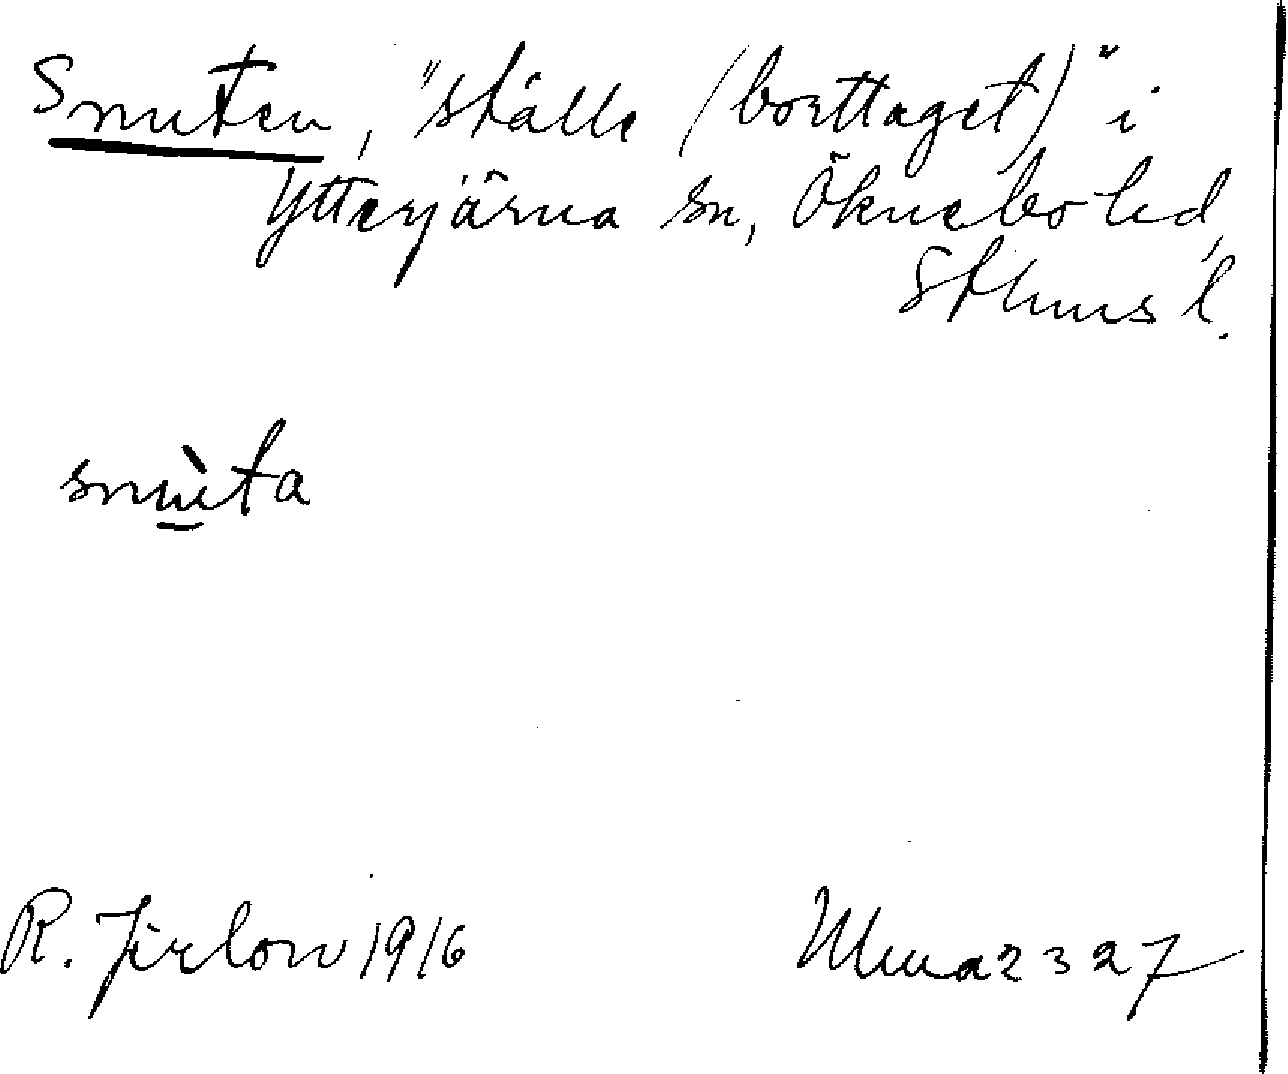 Snuten, "ställe (borttaget)" i
Ytterjärna sn, Öknebo hd,
Sthms l.
snùta
R. Jirlow 1916
Muma 2327